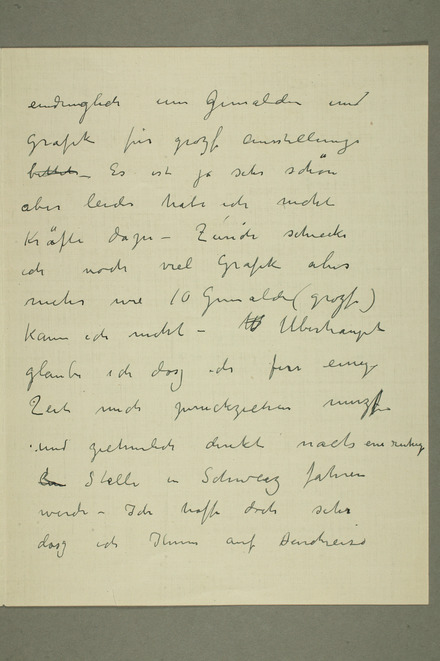 eindringlich um Gemälden und
Grafik für grozse Ausstellungs
bittet – Es ist ja sehr schön
aber leider habe ich nicht
Kräfte dazu – Zürich schicke
ich noch viel Grafik aber
mehr wie 10 Gemälde (grozse)
kann ich nicht – Überhaupt
glaube ich dasz ich für einige
Zeit mich zurückziehen musz
und ziehmlich direkt nach eine ruhige
Stelle in Schweiz fahren
werde – Ich hoffe doch sehr
dasz ich Ihnen auf Durchreise